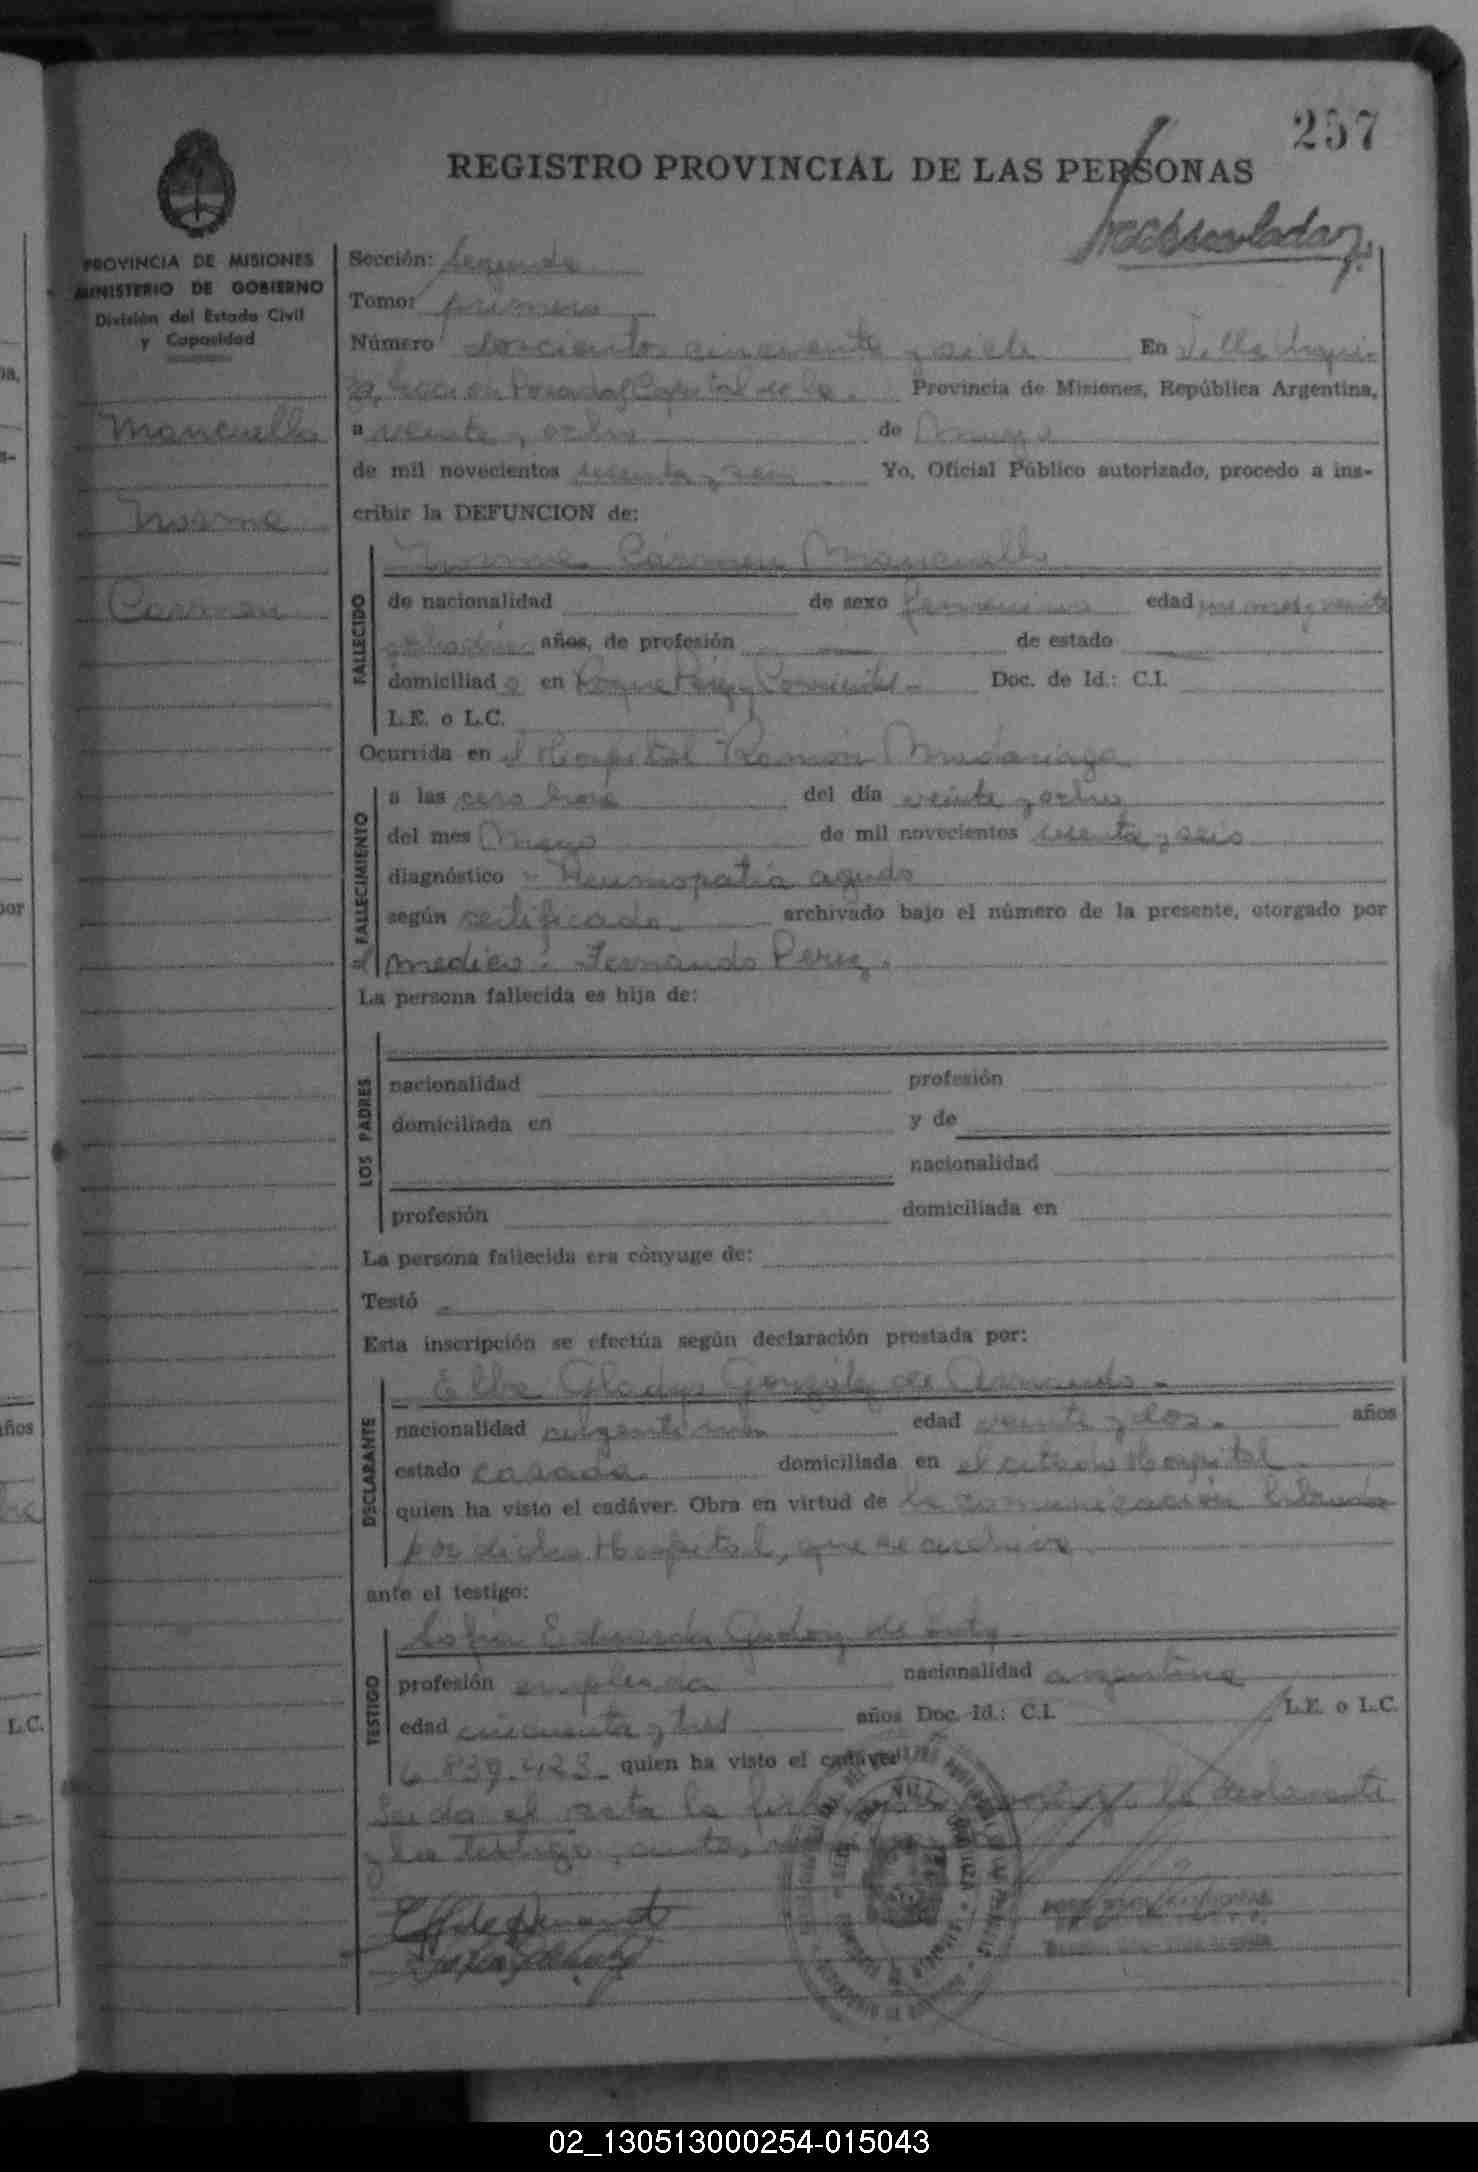 257
REGISTRO PROVINCIAL DE LAS PERSONAS
PROVINCIA DE MISIONES
MINISTERIO DE GOBIERNO
División del Estado Civil
y Capacidad
Mancuello
Norma
Carmen
Sección: Segunda
Tomo: primero
Número doscientos cincuenta y siete En Villa Urqui-
za, Sección Posadas Capital de la Provincia de Misiones, República Argentina,
a veinte y ocho de Mayo
de mil novecientos sesenta y seis Yo, Oficial Público autorizado, procedo a ins-
cribir la DEFUNCION de:
Norma Carmen Mancuello
FALLECIDO
de nacionalidad de sexo femenino edad un mes y veinte
ocho días años, de profesión de estado
domiciliado en Roque Perez y Corrientes - Doc. de Id.: C.I.
L.E. o L.C.
Ocurrida en el Hospital Ramón Madariaga
FALLECIMIENTO
a las cero hora del día veinte y ocho
del mes Mayo de mil novecientos sesenta y seis
diagnóstico - Neumopatia aguda
según certificado archivado bajo el número de la presente, otorgado por
el medico: Fernando Perez.
La persona fallecida es hija de:
LOS PADRES
nacionalidad profesión
domiciliada en y de
nacionalidad
profesión domiciliada en
La persona fallecida era cònyuge de:
Testó
Esta inscripción se efectúa según declaración prestada por:
DECLARANTE
Elba Gladys González de
nacionalidad argentina edad veinte y dos. años
estado casada domiciliada en el citado Hospital
quien ha visto el cadáver. Obra en virtud de la comunicación librada
por dicho Hospital, que se archiva
ante el testigo:
TESTIGO
Sofia Eduarda Godoy de
profesión empleada nacionalidad argentina
edad cincuenta y tres años Doc. Id.: C.I. L.E. o L.C.
6.839.423 - quien ha visto el cadáver
Leida el acta la la declarante
y la testigo, ante
02_130513000254-015043